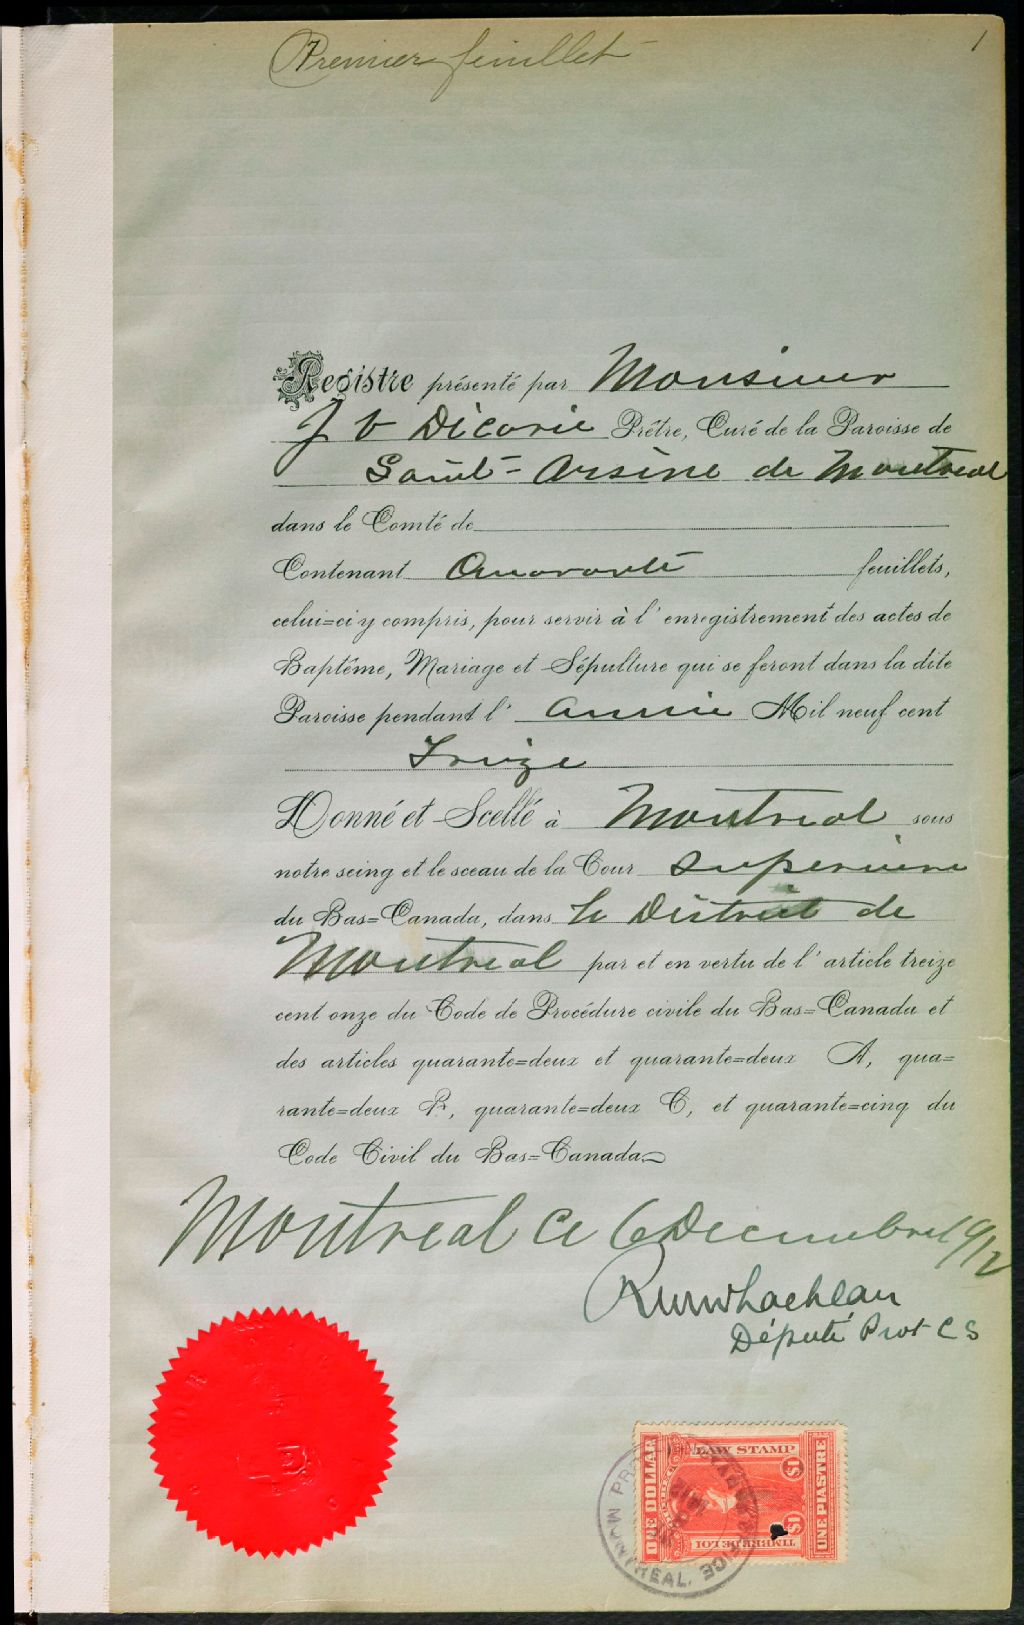 Premier feuillet
1
Registre présenté par Monsieur
J V Décarie Prêtre, Curé de la Paroisse de
Saint-Arsène de Montreal
dans le Comté de
Contenant Quarante feuillets,
celui=ci y compris, pour servir à l'enregistrement des actes de
Baptême, Mariage et Sépulture qui se feront dans la dite
Paroisse pendant l'année Mil neuf cent
Treize
Donné et Scellé à Montreal sous
notre seing et le sceau de la Cour Superieure
du Bas=Canada, dans le District de
Montreal par et en vertu de l'article treize
cent onze du Code de Procédure civile du Bas=Canada et
des articles quarante=deux et quarante=deux A, qua=
rante=deux B, quarante=deux C, et quarante=cinq du
Code Civil du Bas=Canada
Montreal ce 6 Decembre 1912
Député Prot C S
LAW STAMP
ONE DOLLAR
$1
UNE PIASTRE
$1
TIMBRE DE LOI
MONTREAL.